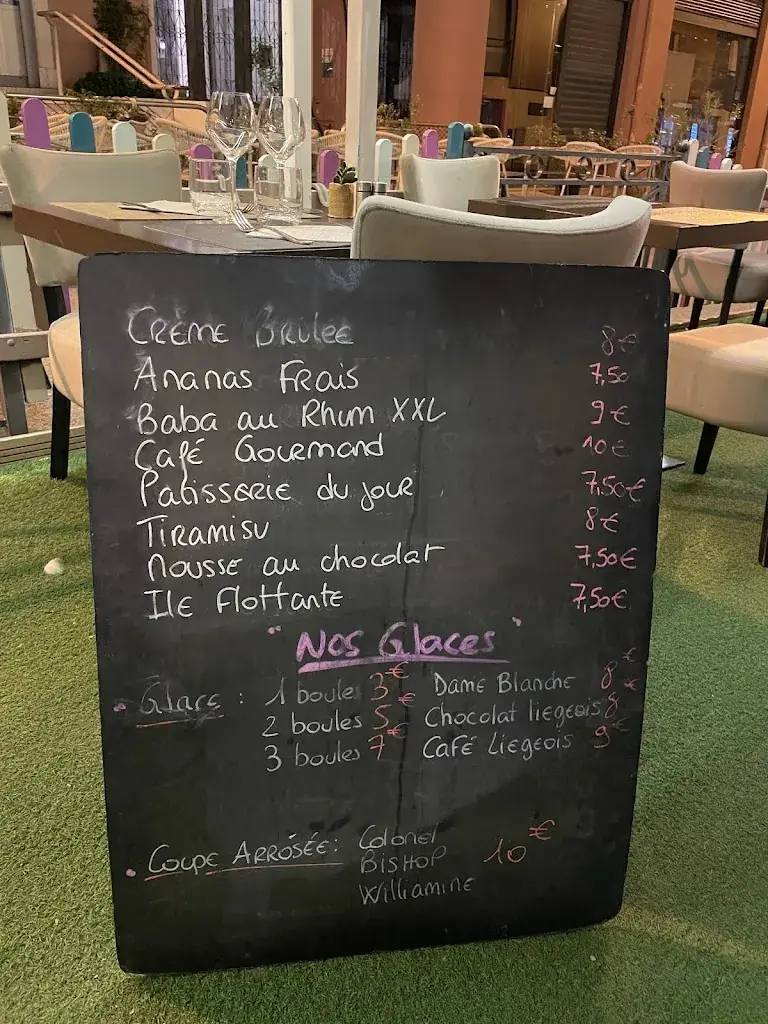 CRÈME BRULEE 8€
Ananas FRAIS 7,50
Baba au Rhum XXL 9€
Café Gourmand 10€
Patisserie du jour 7,50€
TIRAMISU 8€
Mousse au chocolat 7,50€
ILE Flottante 7,50€
"NOS Glaces"
Glace : 1 boule 3€ DAME BLANCHE 8€
2 boules 5€ Chocolat liegeois 8€
3 boules 7€ CAFÉ LIEGEOIS 9€
COUPE ARROSÉE: Colonel
BISHOP 10€
Williamine